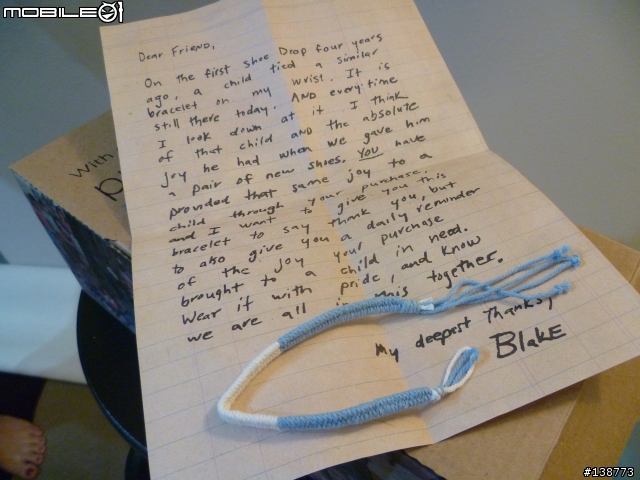 MOBILE01
Dear Friend,
On the first Shoe Drop four years
ago, a child tied a similar
bracelet on my wrist. It is
still there today. AND every time
I look down at it I think
of that child AND the absolute
joy he had when we gave him
a pair of new shoes. You have
provided that same joy to a
child through your purchase.
and I want to give you this
bracelet to say thank you, but
to also give you a daily reminder
of the joy your purchase
brought to a child in need.
Wear it with pride, and know
we are all in this together.
My deepest Thanks,
Blake
With
#138773